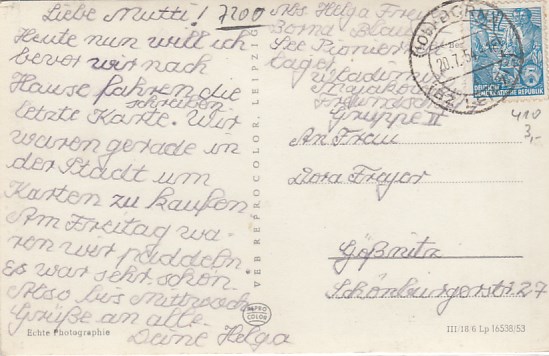 Liebe Mutti! 7200
Heute nun will ich
bevor wir nach
Hause fahren die
letzte Karte schreiben. Wir
waren gerade in
der Stadt um
Karten zu kaufen
Am Freitag wa-
ren wir paddeln
Es war sehr schön.
Also bis Mittwoch
Grüße an alle.
Deine Helga
Echte Photographie
VEB REPROCOLOR, LEIPZIG
REPRO
COLOR
Abs. Helga Freyer
Borna
Pionier
lager
Wladimir
Majakowski
Gruppe II
An Frau
Dora Freyer
Gößnitz
Schönburgerstr. 27
BORNA
20.7.54
DEUTSCHE
DEMOKRATISCHE REPUBLIK
5
410
3,-
III/18/6 Lp 16538/53